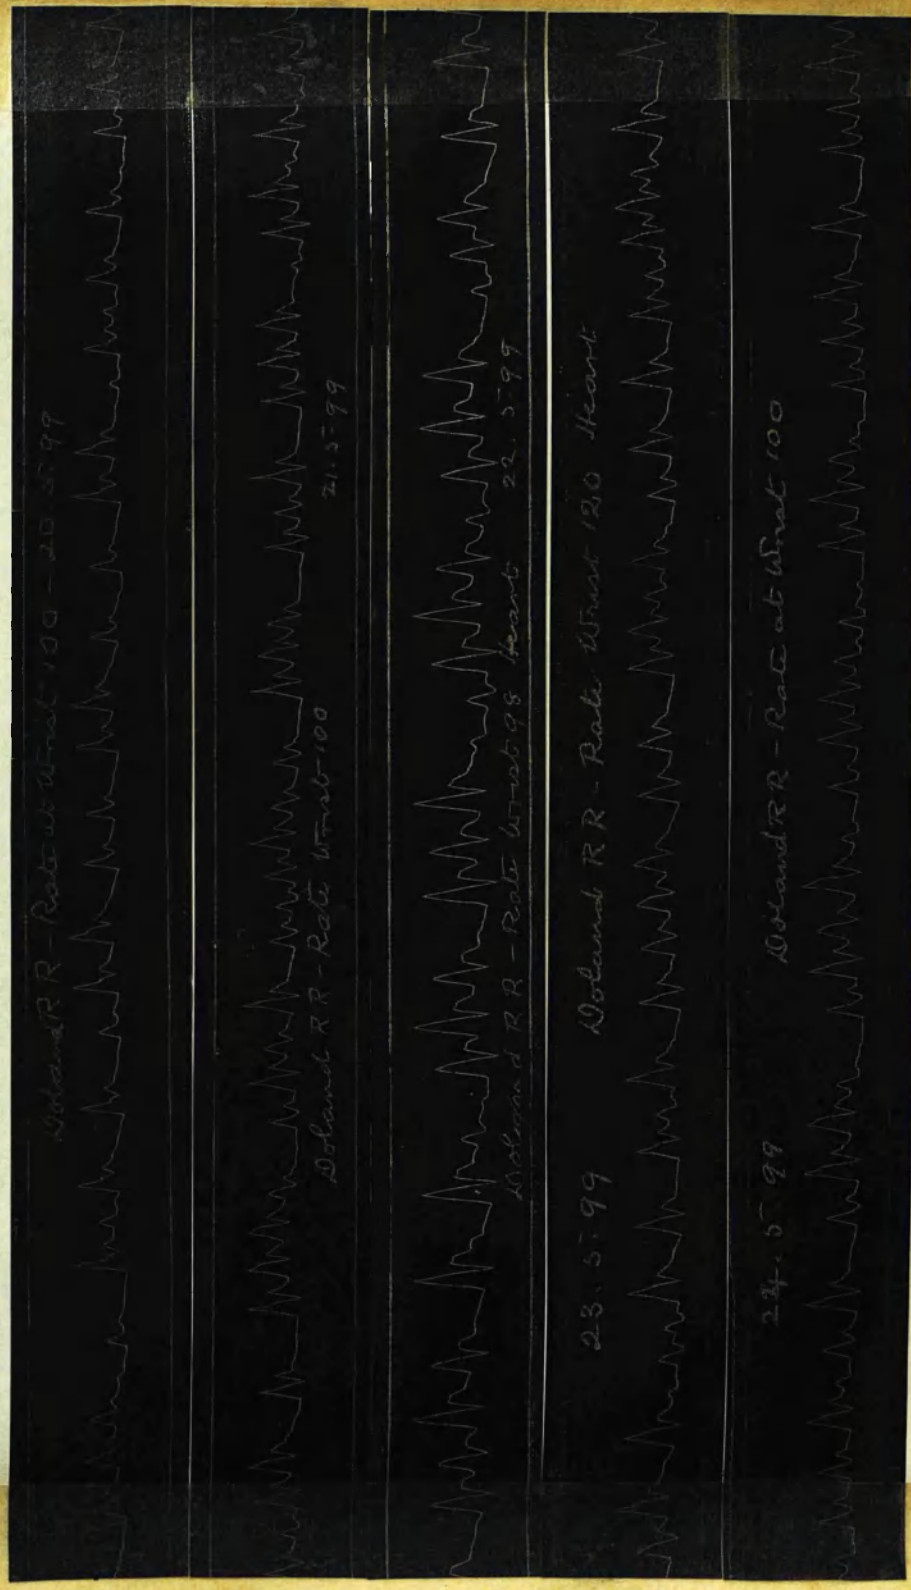 Doland R R - Rate at Wrist 100 - 20.5.99
21.5.99
Doland R R - Rate Wrist 100
Doland R R - Rate Wrist 98 Heart 22.5.99
23.5.99 Doland R R - Rate Wrist 120 Heart
24.5.99 Doland R R - Rate at Wrist 100